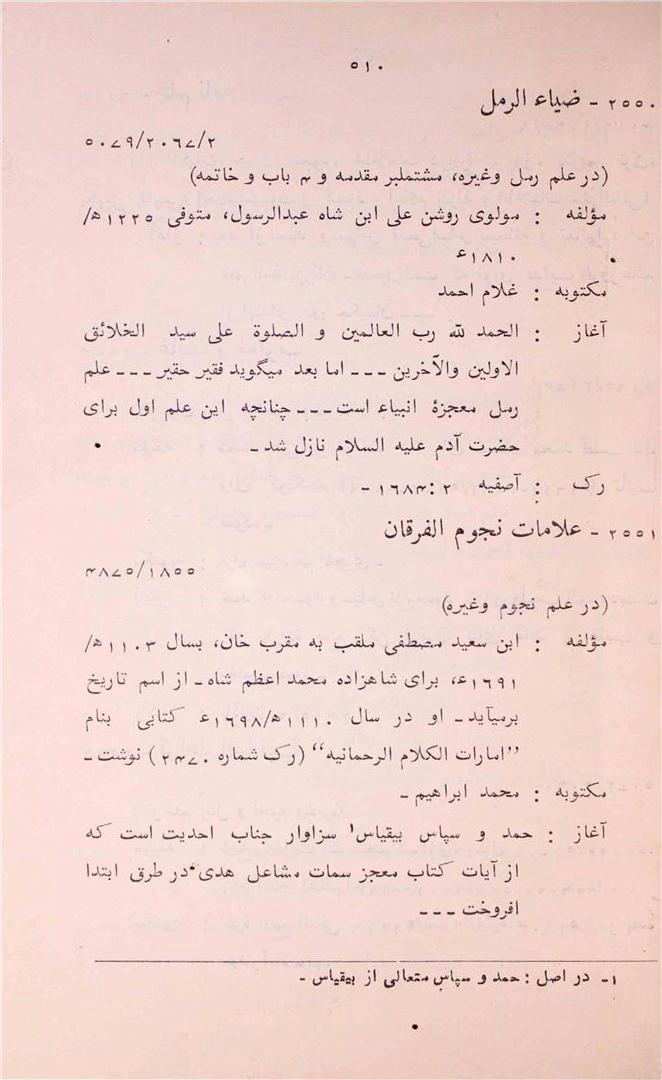 ۵۱۰
۲۵۵۰ - ضیاء الرمل
۵۰۷۹/۲۰۶۷/۲
(در علم رمل وغیره، مشتملبر مقدمه و ۴ باب و خاتمه)
مؤلفه : مولوی روشن علی ابن شاه عبدالرسول، متوفی ۱۲۲۵ھ/
۱۸۱۰ء
مکتوبه : غلام احمد
آغاز : الحمد لله رب العالمین و الصلوة علی سید الخلائق
الاولین والآخرین ـ ـ ـ اما بعد میگوید فقیر حقیر ـ ـ ـ علم
رمل معجزهٔ انبیاء است ـ ـ ـ چنانچه این علم اول برای
حضرت آدم علیه السلام نازل شد ـ
رک : آصفیه ۲ : ۱۶۸۴ -
۲۵۵۱ - علامات نجوم الفرقان
۴۸۷۵/۱۸۵۵
(در علم نجوم وغیره)
مؤلفه : ابن سعید مصطفی ملقب به مقرب خان، بسال ۱۱۰۳ھ/
۱۶۹۱ء، برای شاهزاده محمد اعظم شاه ـ از اسم تاریخ
برمیآید ـ او در سال ۱۱۱۰ھ/۱۶۹۸ء کتابی بنام
”امارات الکلام الرحمانیه“ (رک شماره ۲۴۷۰) نوشت ـ
مکتوبه : محمد ابراهیم ـ
آغاز : حمد و سپاس بیقیاس¹ سزاوار جناب احدیت است که
از آیات کتاب معجز سمات مشاعل هدی در طرق ابتدا
افروخت ـ ـ ـ
۱- در اصل : حمد و سپاس متعالی از بیقیاس -